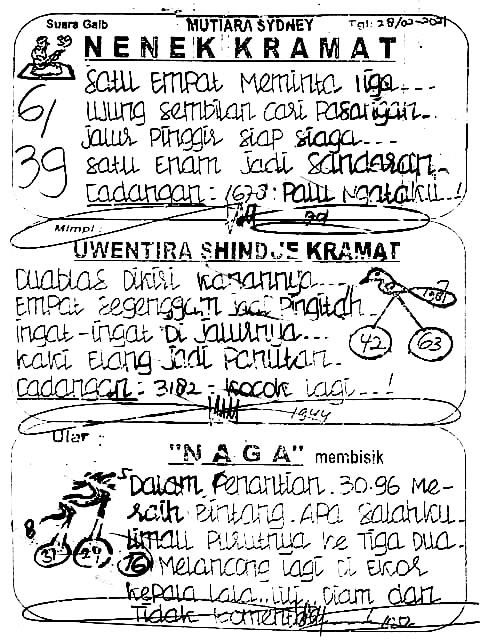 Suara Gaib MUTIARA SYDNEY Tgl: 28/02-2021
NENEK KRAMAT
Satu Empat Meminta Tiga....
6/ Ujung Sembilan Cari Pasangan..
Jalur Pinggir Siap Siaga....
39 Satu Enam Jadi Sandaran..
Cadangan : 1678 : Palu Ngataku..!
Mimpi :
UWENTIRA SHINDUE KRAMAT
Duablas Dikiri Kanannya...
Empat Segenggam Jadi Pingitan
Ingat-Ingat Di Jalurnya...
42 63
Kaki Elang Jadi Panutan..
Cadangan : 3182 - Kocok Lagi...!
1944
Ular :
"NAGA" membisik
Dalam Penantian. 30.96 Me-
raih Bintang. Apa Salahku..
8 5
Limau Purutnya Ke Tiga Dua.
16 Melancong Lagi Di Ekor
Kepala Lala... Diam dan
Tidak Komentar